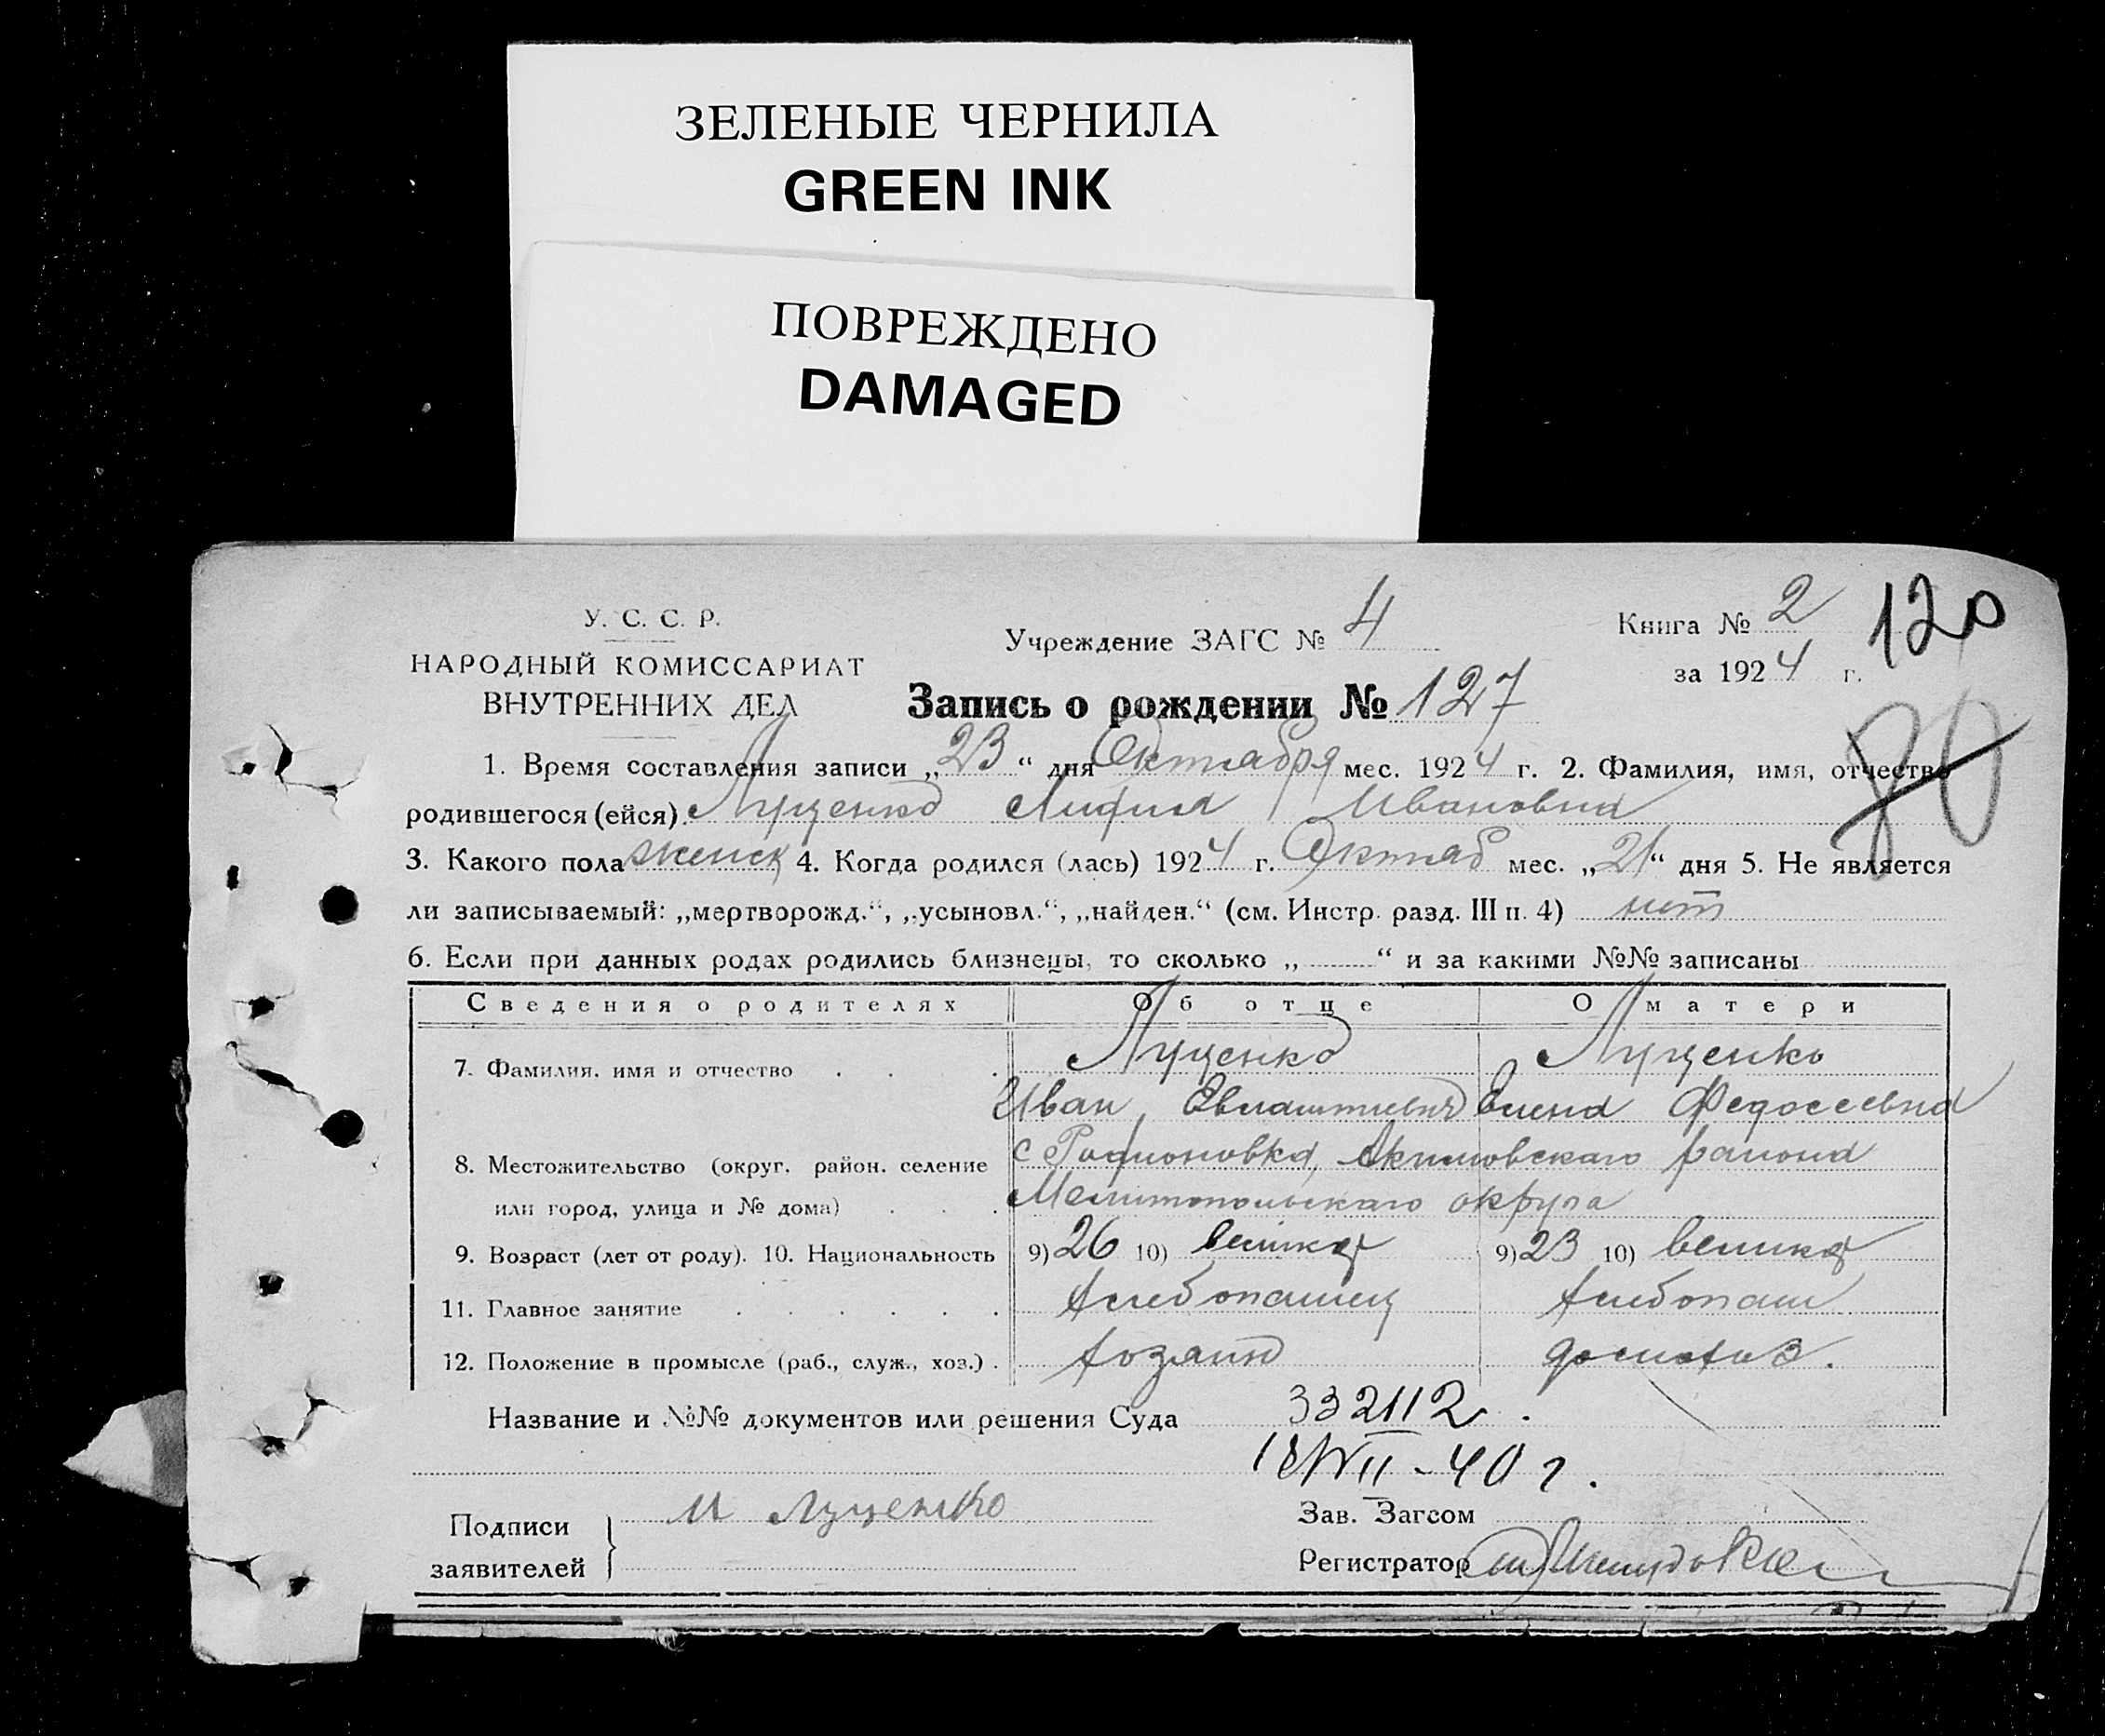 ЗЕЛЕНЫЕ ЧЕРНИЛА
GREEN INK
ПОВРЕЖДЕНО
DAMAGED
У. С. С. Р.
НАРОДНЫЙ КОМИССАРИАТ
ВНУТРЕННИХ ДЕЛ
Учреждение ЗАГС № 4
Книга № 2
120
за 1924 г.
Запись о рождении № 127
80
1. Время составления записи „23“ дня Октября мес. 1924 г. 2. Фамилия, имя, отчество
родившегося (ейся) Луценко Лидия Ивановна
3. Какого пола женск 4. Когда родился (лась) 1924 г. Октяб мес. „21“ дня 5. Не является
ли записываемый: „мертворожд.“, „усыновл.“, „найден.“ (см. Инстр. разд. III п. 4) нет
6. Если при данных родах родились близнецы, то сколько „ “ и за какими №№ записаны
Сведения о родителях Об отце О матери
7. Фамилия, имя и отчество Луценко Луценко
Иван Елена Федосеевна
8. Местожительство (округ, район, селение с Родионовка, Акимовскаго района
или город, улица и № дома) Мелитопольскаго округа
9. Возраст (лет от роду). 10. Национальность 9) 26 10) великор 9) 23 10) великор
11. Главное занятие хлебопашец хлебопаш
12. Положение в промысле (раб., служ., хоз.) хозяин домохоз.
Название и №№ документов или решения Суда 332112.
-40 г.
Подписи заявителей И Луценко
Зав. Загсом
Регистратор